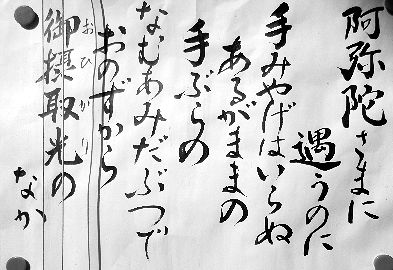 阿弥陀さまに
遇うのに
手みやげはいらぬ
あるがままの
手ぶらの
なむあみだぶつで
おのずから
御摂取光の
おひかり
なか